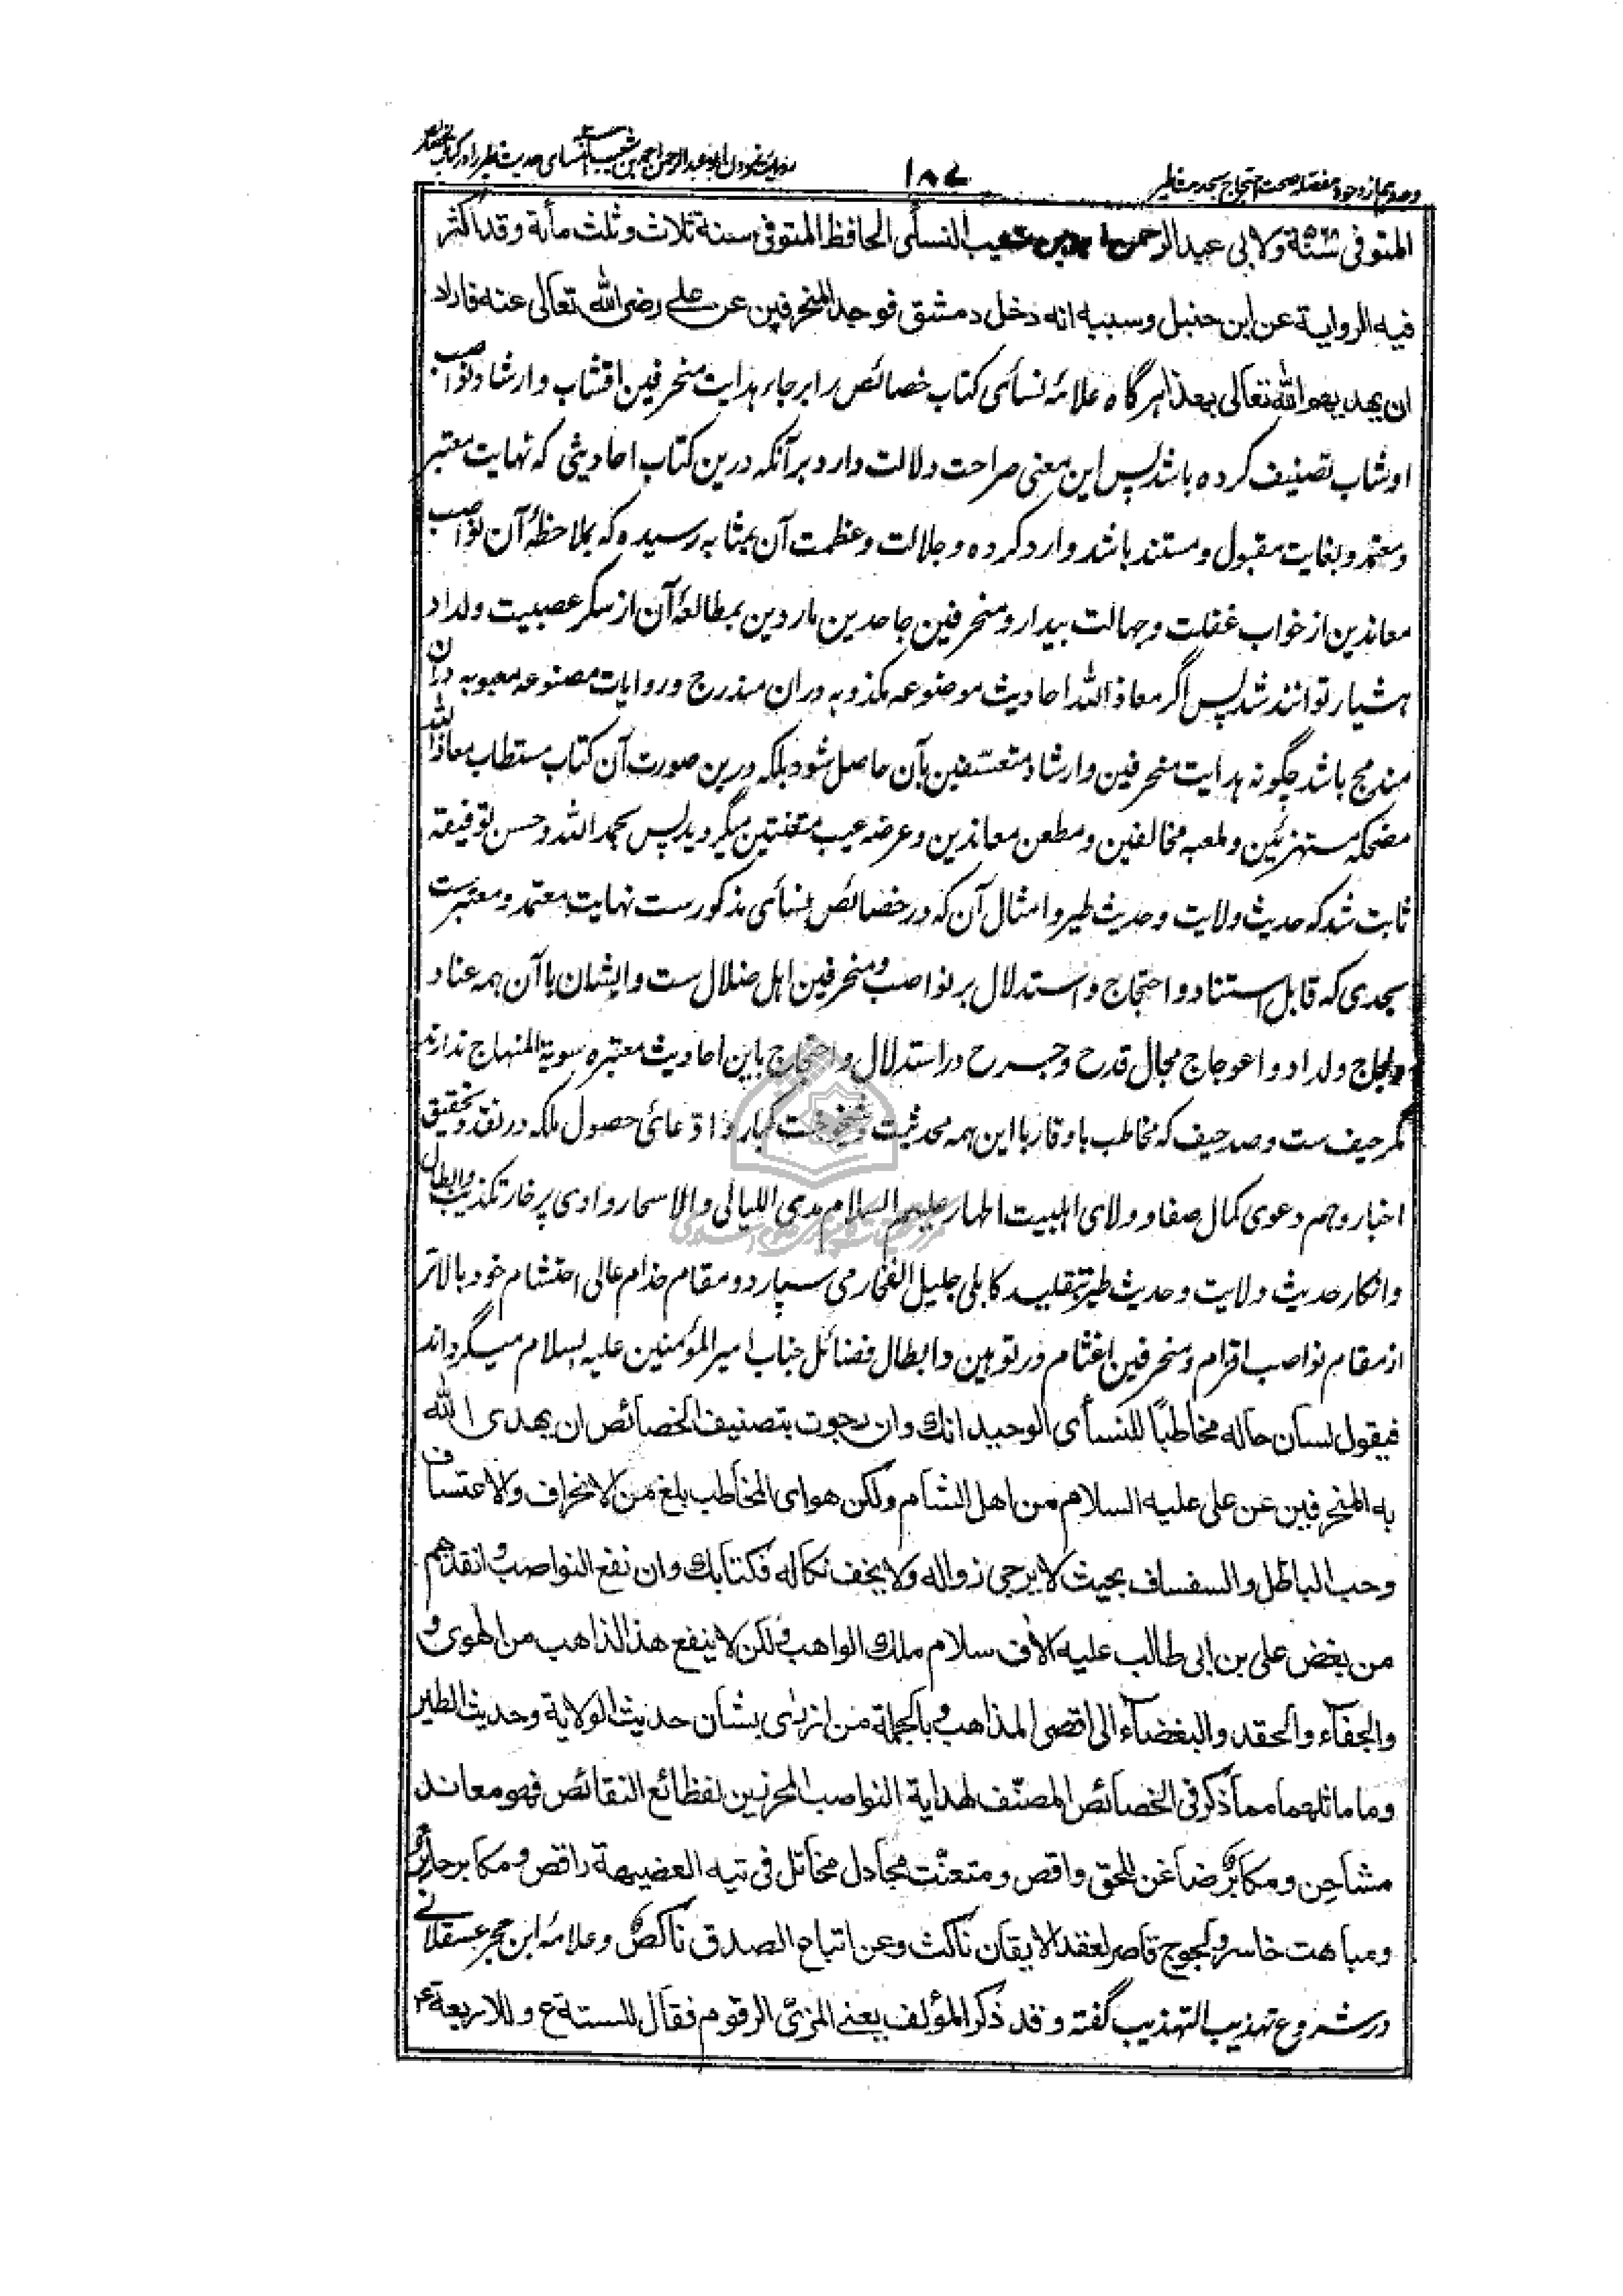 وجه دهم از وجوه مفصله صحت احتجاج بحدیث طیر
۱۸۷
روایت نمودن ابو عبد الرحمن احمد بن شعیب النسائی حدیث طیر را در کتاب خصائص
المتوفی سنة ولابی عبد الرحمن احمد بن شعیب النسائی الحافظ المتوفی سنة ثلاث وثلث مأیة وقد اکثر
فیه الروایة عن ابن حنبل وسببه انه دخل دمشق فوجد المنحرفین عن علی رضی الله تعالی عنه فاراد
ان یهدیهم الله تعالی بهذا هرگاه علامۀ نسائی کتاب خصائص را برجاء هدایت منحرفین اقشاب وارشاد نواصب
اوشاب تصنیف کرده باشد پس این معنی صراحت دلالت دارد بر آنکه درین کتاب احادیثی که نهایت معتبر
ومعتمد وبغایت مقبول ومستند باشد وارد کرده وجلالت وعظمت آن بمثابه رسیده که بملاحظۀ آن نواصب
معاندین از خواب غفلت وجهالت بیدار ومنحرفین جاحدین ماردین بمطالعۀ آن از سکر عصبیت ولداد
هشیار توانند شد پس اگر معاذ الله احادیث موضوعه مکذوبه دران مندرج وروایات مصنوعه معیوبه دران
مندمج باشد چگونه هدایت منحرفین وارشاد متعسفین بآن حاصل شود بلکه درین صورت آن کتاب مستطاب معاذ الله
مضحکه مستهزئین وملعبه مخالفین ومطعن معاندین وعرضه عیب متعنتین میگردید پس بحمد الله وحسن توفیقه
ثابت شد که حدیث ولایت وحدیث طیر وامثال آن که در خصائص نسائی مذکورست نهایت معتمد ومعتبرست
بحدی که قابل استناد واحتجاج واستدلال بر نواصب ومنحرفین اهل ضلال ست وایشان با آن همه عناد
ولجاج ولداد واعوجاج مجال قدح وجرح در استدلال واحتجاج باین احادیث معتبره سویة المنهاج ندارند
مگر حیف ست وصد حیف که مخاطب باوقار با این همه محدثیت وشیخوخت کبار وادعائی حصول ملکه در نقد وتحقیق
اخبار وهم دعوی کمال صفا وولای اهلبیت اطهار علیهم السلام مدی اللیالی والاسحار وادی پر خار تکذیب وابطال
وانکار حدیث ولایت وحدیث طیر بتقلید کابلی جلیل الفخار می سپارد ومقام خدام عالی احتشام خود بالاتر
از مقام نواصب اقزام ومنحرفین اغثام در توهین وابطال فضائل جناب امیر المؤمنین علیه السلام میگرداند
فیقول لسان حاله مخاطبا للنسأی الوحید انك وان رجوت بتصنیف الخصائص ان یهدی الله
به المنحرفین عن علی علیه السلام من اهل الشام ولکن هوای المخاطب بلغ من الانحراف والاعتساف
وحب الباطل والسفساف بحیث لا یرجی زواله ولا یخف نکاله فکتابك وان نفع النواصب وانقذهم
من بغض علی بن ابی طالب علیه الاف سلام ملك الواهب ولکن لا ینفع هذا الذاهب من الهوی و
والجفاء والحقد والبغضاء الی اقصی المذاهب وبالجملة من ازری بشان حدیث الولایة وحدیث الطیر
وما ماثلهما مما ذکر فی الخصائص المصنف لهدایة النواصب المحرزین لفظائع النقائص فهو معاند
مشاحن ومکابر ضاغن للحق واقص ومتعنت مجادل مخاتل فی تیه العضیهة راقص ومکابر حائر
ومباهت خاسر ولجوج قاصر لعقد الایقان ناکث وعن اتباع الصدق ناکص وعلامۀ ابن حجر عسقلانی
در شروع تهذیب التهذیب گفته وقد ذکر المؤلف یعنی المزی الرقوم فقال للستة ع وللاربعة ۴